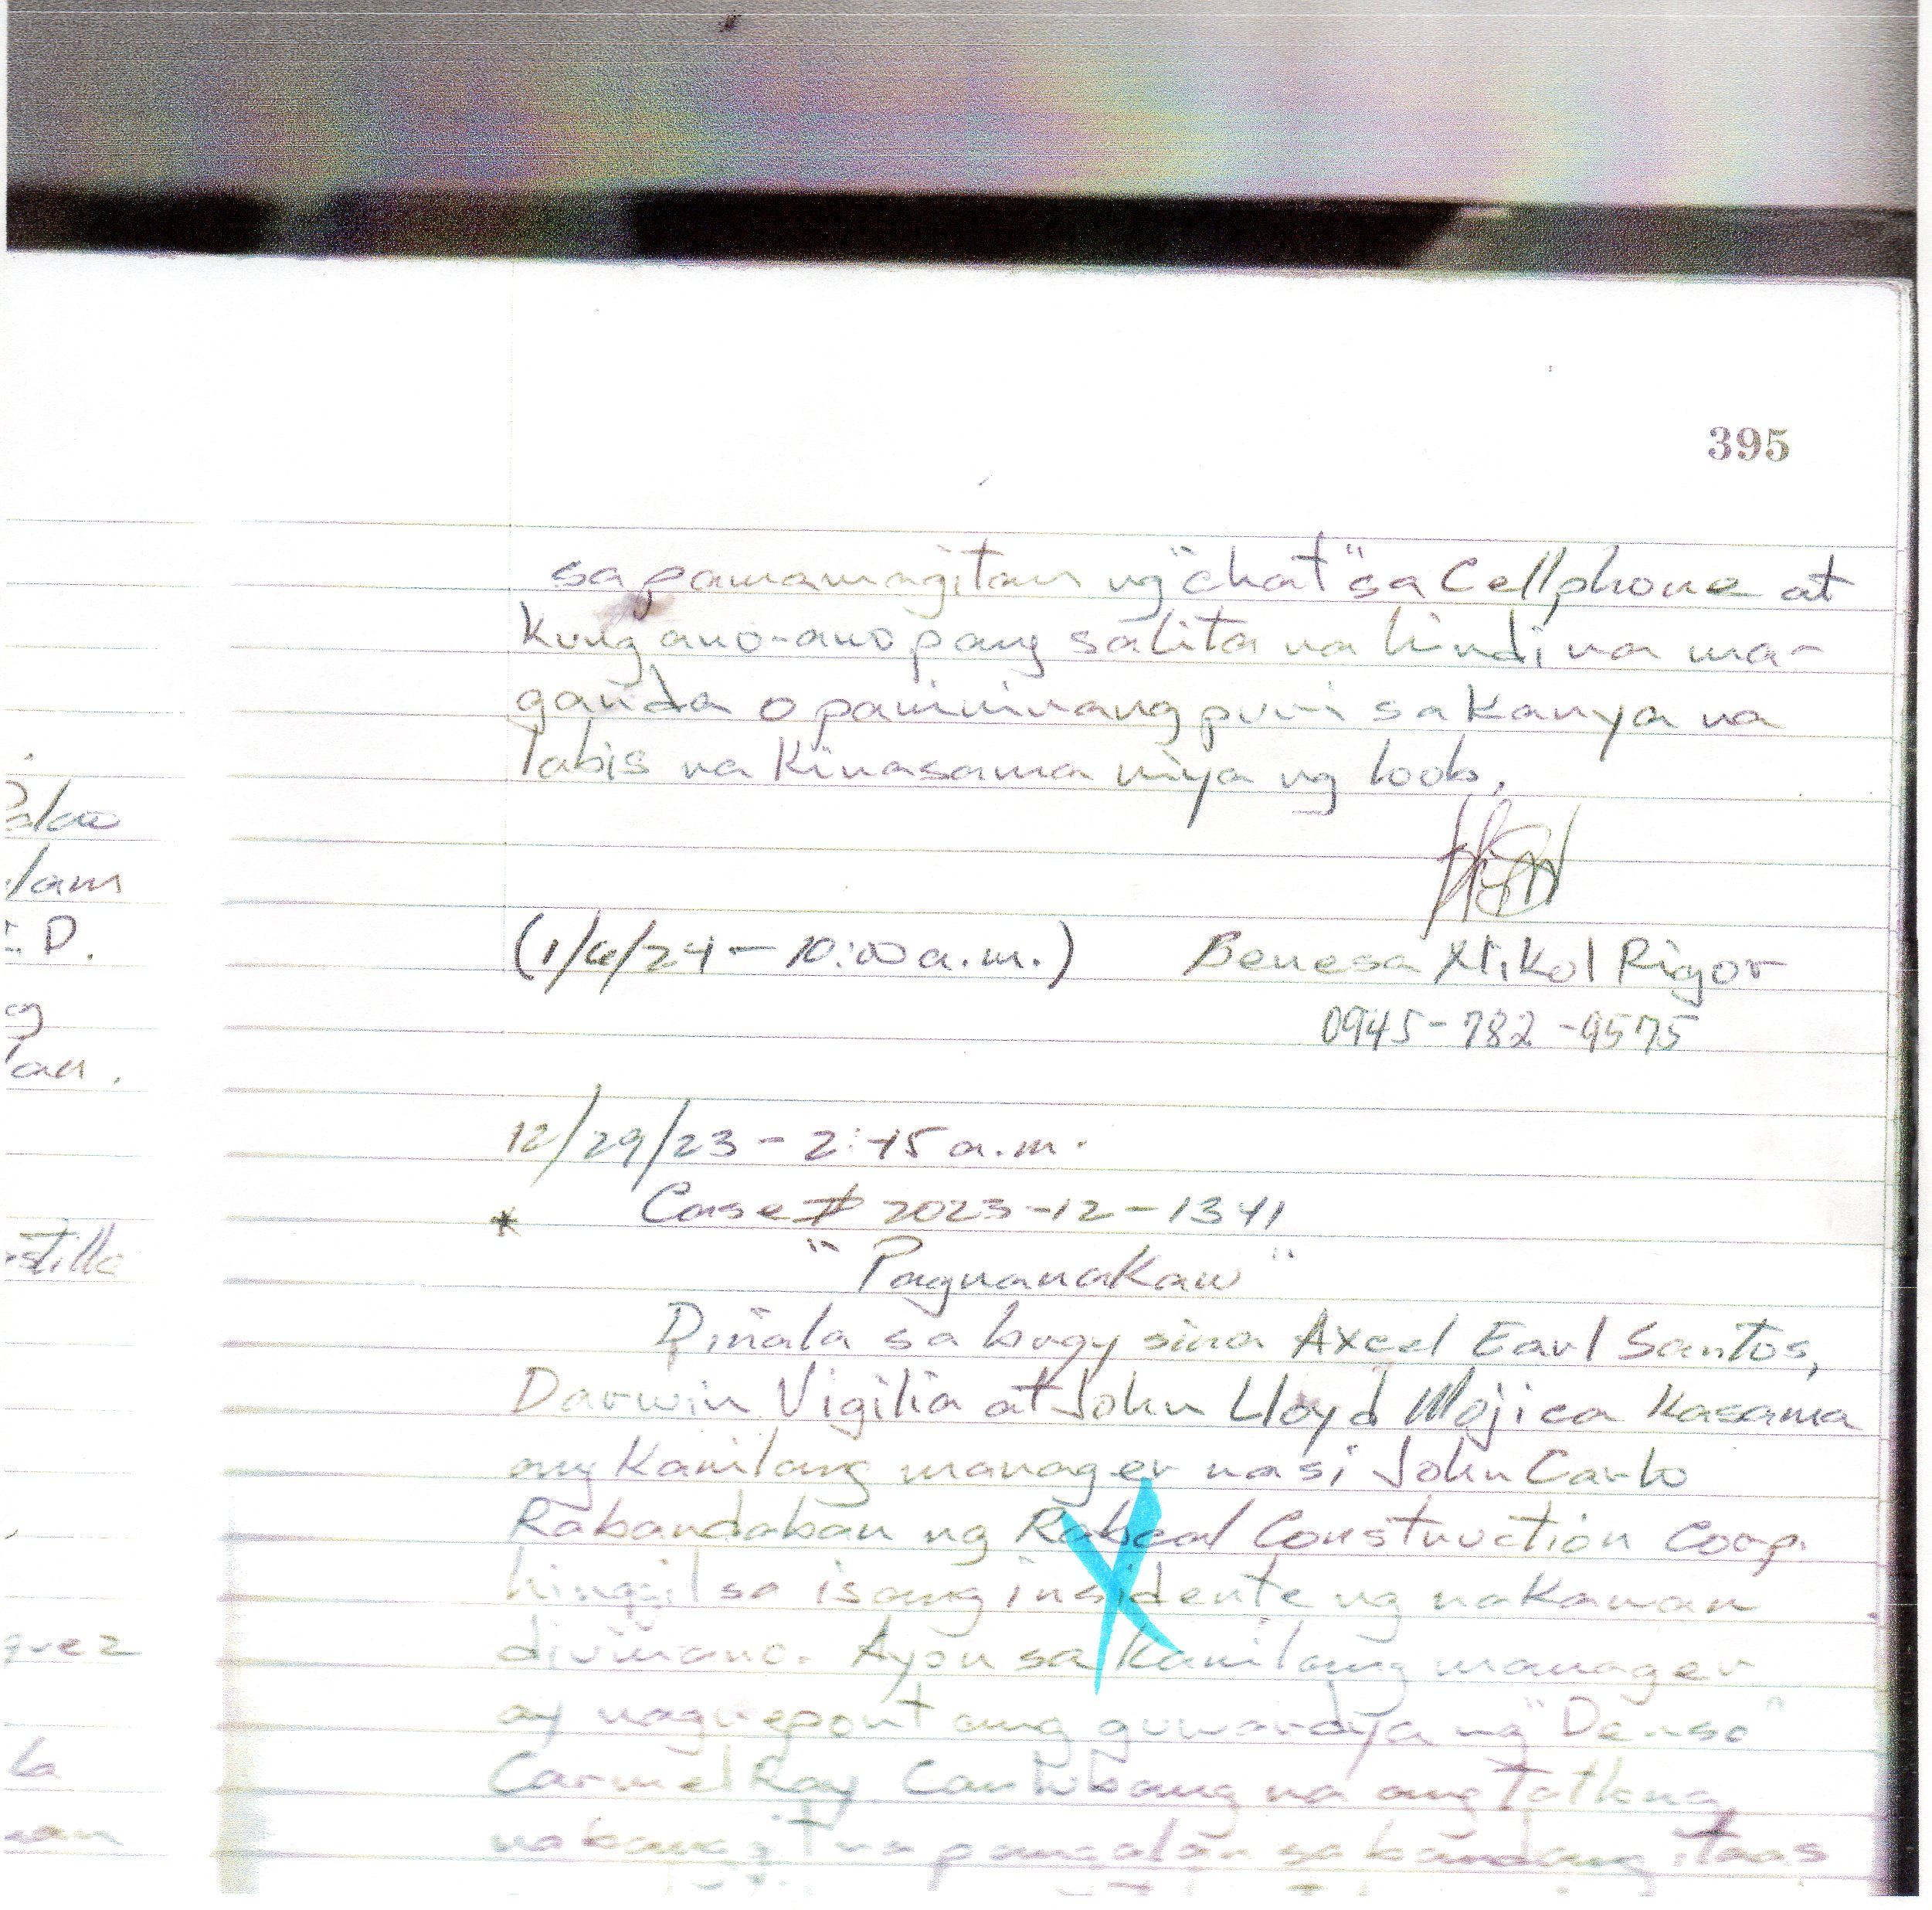 395
sa pamamagitan ng "chat" sa Cellphone at
kung ano-ano pang salita na hindi na ma-
ganda o paninirang puri sa kanya na
labis na kinasama niya ng loob.
(1/6/24 - 10:00 a.m.) Benesa Nikol Rigor
0945-782-9575
12/29/23 - 2:45 a.m.
* Case # 2023-12-1341
"Pagnanakaw"
Dinala sa brgy sina Axcel Earl Santos,
Darwin Vigilia at John Lloyd Mojica kasama
ang kanilang manager na si John Carlo
Rabandaban ng Rabcal Construction Coop.
hinggil sa isang insidente ng nakawan
diumano. Ayon sa kanilang manager
ay nagreport ang guwardya ng "Denso"
CarmelRay Canlubang na ang tatlong
nabanggit na pangalan sa bandang itaas
elam
E.D.
g
stilla
quez
la